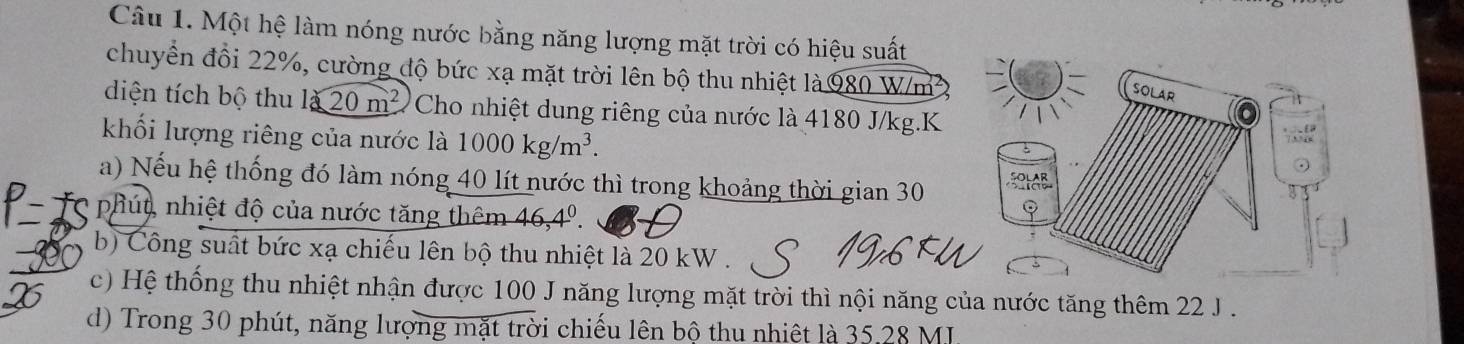 Câu 1. Một hệ làm nóng nước bằng năng lượng mặt trời có hiệu suất
chuyển đổi 22%, cường độ bức xạ mặt trời lên bộ thu nhiệt là 980 W/m²,
diện tích bộ thu là 20 m². Cho nhiệt dung riêng của nước là 4180 J/kg.K
khối lượng riêng của nước là 1000 kg/m³.
a) Nếu hệ thống đó làm nóng 40 lít nước thì trong khoảng thời gian 30
phút, nhiệt độ của nước tăng thêm 46,4⁰. Đ
b) Công suất bức xạ chiếu lên bộ thu nhiệt là 20 kW. S 19,6 kW
c) Hệ thống thu nhiệt nhận được 100 J năng lượng mặt trời thì nội năng của nước tăng thêm 22 J.
d) Trong 30 phút, năng lượng mặt trời chiếu lên bộ thu nhiệt là 35,28 MJ
P = IS
980
20
SOLAR
SOLAR
TANK